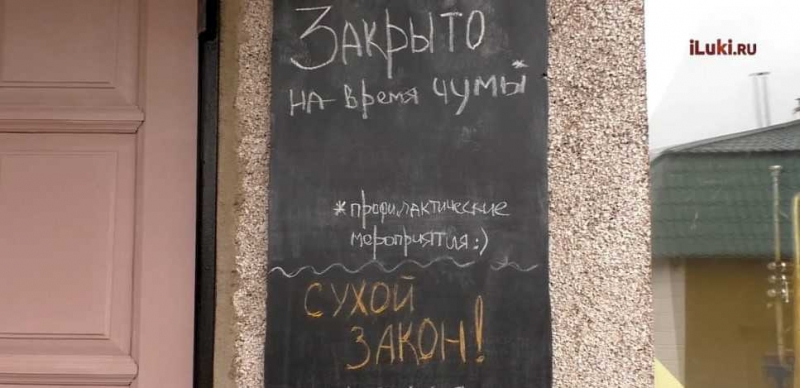 Закрыто
на время чумы*
*профилактические
мероприятия:)
СУХОЙ
ЗАКОН!
iLuki.ru